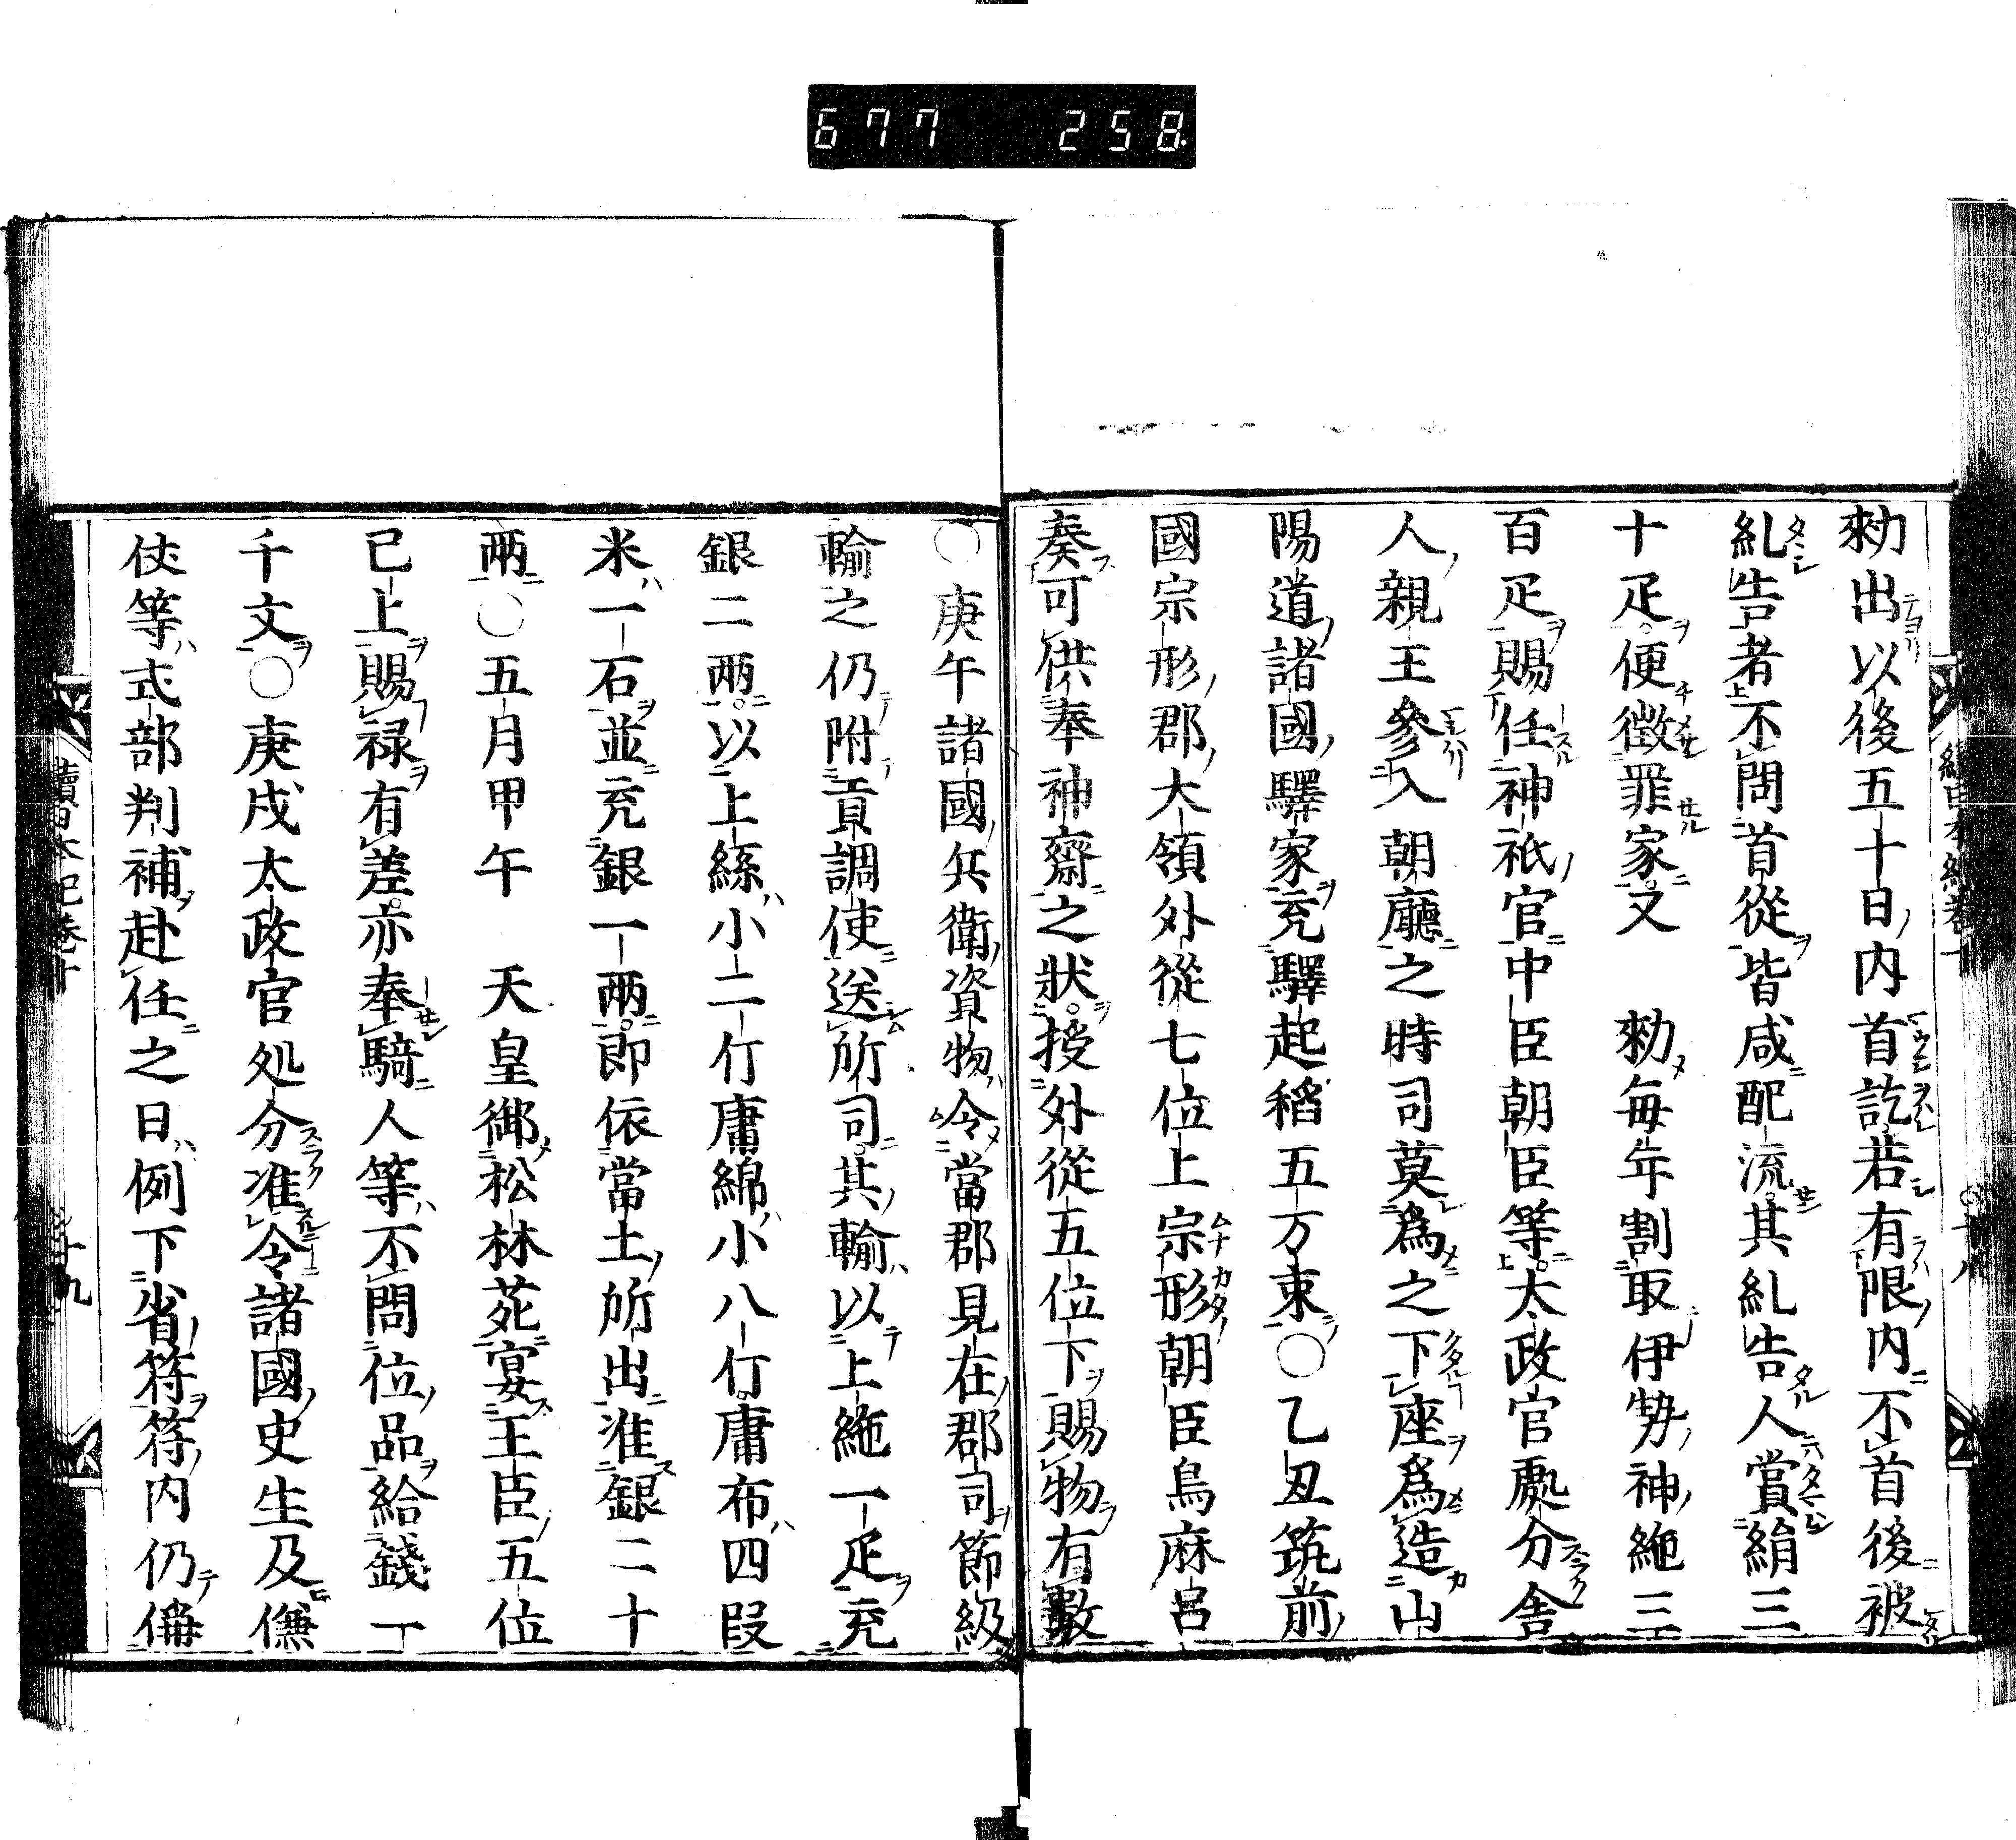 677 258
勑出以後五十日内首訖若有限内不首後被
糺告者不問首從皆咸配流其糺告人賞絹三
十疋便徴罪家又 勑毎年割取伊勢神絁三
百疋賜任神祇官中臣朝臣等太政官處分舎
人親王參入朝廳之時司莫爲之下座爲造山
陽道諸國驛家充驛起稻五万束○乙丑筑前
國宗形郡大領外從七位上宗形朝臣鳥麻呂
奏可供奉神齋之狀授外從五位下賜物有數
○庚午諸國兵衛資物令當郡見在郡司節級
輸之仍附貢調使送所司其輸以上絁一疋充
銀二兩以上絲小二斤庸綿小八斤庸布四段
米一石並充銀一兩即依當土所出准銀二十
兩○五月甲午 天皇御松林苑宴王臣五位
已上賜禄有差亦奉騎人等不問位品給錢一
千文○庚戌太政官処分准令諸國史生及傔
仗等式部判補赴任之日例下省符符内仍偁
續日本紀巻十
十九